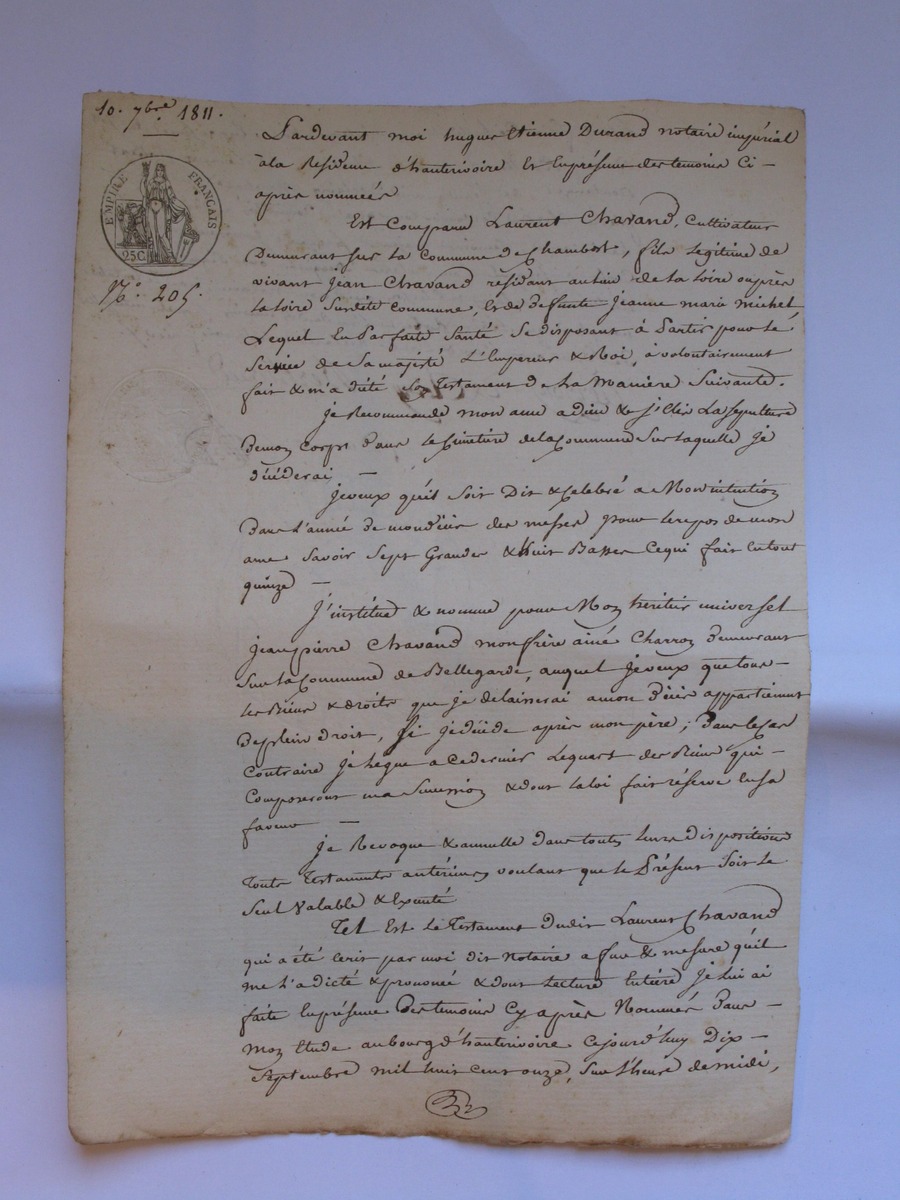 10. 7bre 1811.
EMPIRE FRANÇAIS
25C
N.° 205.
Pardevant moi hugues Etienne Durand notaire impérial
à la Residence d'hauterivoire Et Enpresence des temoins Ci-
après nommées
Est Comparu Laurent Chavand, Cultivateur
Demeurant sur la Commune de Chambost, fils legitime de
vivant jean Chavand résidant au lieu de la loire ouprès
la loire Susdite Commune, Et de defunte jeanne marie michel
Lequel En Parfaite Santé Se disposant à Partir pour le
Service de Sa majesté L'Empereur & Roi, à volontairement
fait & m'a dicté Son Testament de La Maniere Suivante.
Je Recommande mon ame a dieu & j'Elis La sepulture
De mon corps dans le Cimetiere de la Commune Sur laquelle je
décéderai —
Je veux qu'il Soit Dit & Celebré a Mon intention
Dans l'année de mon décès des messes pour le repos de mon
ame Savoir Sept Grandes & huit Basses Ce qui fait en tout
quinze —
J'institue & nomme pour Mon héritier universel
jean pierre Chavand mon frère ainé Charron Demeurant
Sur la Commune de Bellegarde, auquel je veux que tous-
les Biens & droits que je delaisserai a mon Décès appartiennent
De plein Droit, Si je décède après mon père; Dans le Cas
Contraire je legue a Ce dernier Le quart des Biens qui-
Composeront ma Succession & dont la loi fait réserve En sa
faveur —
Je Revoque & annulle Dans toutes leurs dispositions
Touts Testaments antérieurs voulant que le Présent Soit le
Seul Valable & Exécuté
Tel Est le Testament Dudit Laurent Chavand
qui a été Ecrit par moi dit Notaire a fur & mesure qu'il
me l'a dicté & prononcé & dont Lecture Entière Je lui ai
faite En présence Des temoins Cy après Nommés Dans-
Mon Etude au bourg d'hauterivoire Cejourd'huy Dix-
Septembre mil huit cent onze, Sur l'heure de midi,